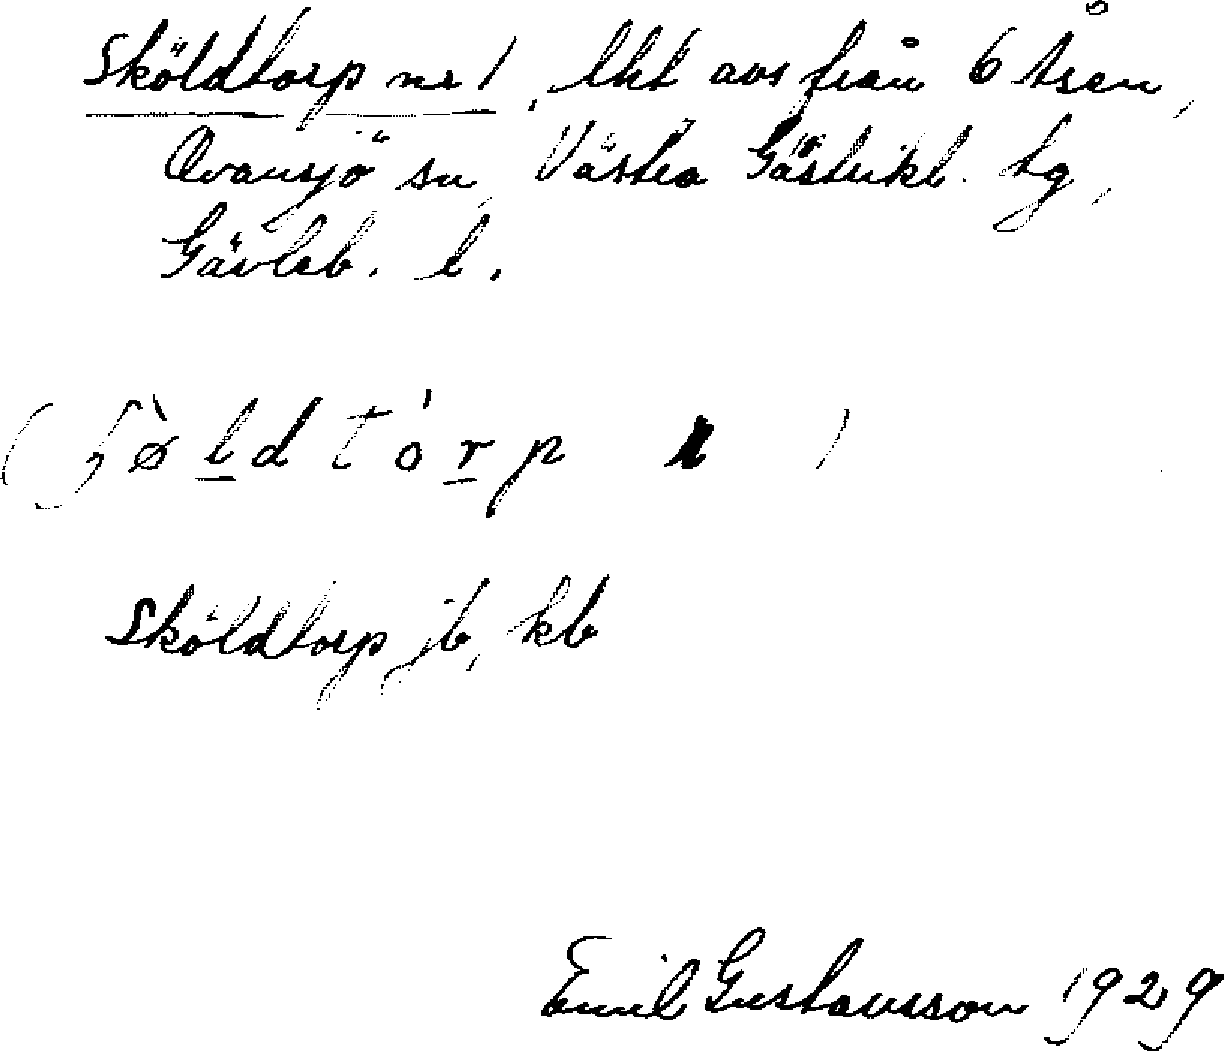 Sköldtorp nr 1, lht avs från 6 Åsen,
Ovansjö sn, Västra Gästrikl. tg,
Gävleb. l.
( ʃø̀l̲dtór̲p )
Sköldtorp jb, kb
Emil Gustavsson 1929